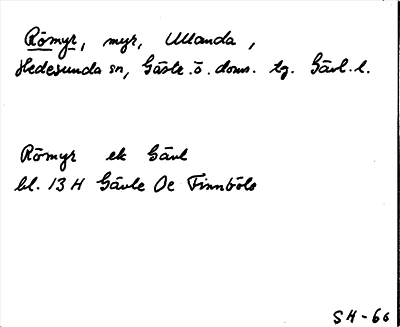 Römyr, myr, Ullanda,
Hedesunda sn, Gästr. ö. doms. tg. Gävl. l.
Römyr ek Gävl
bl. 13 H Gävle Oe Finnböle
SH-66